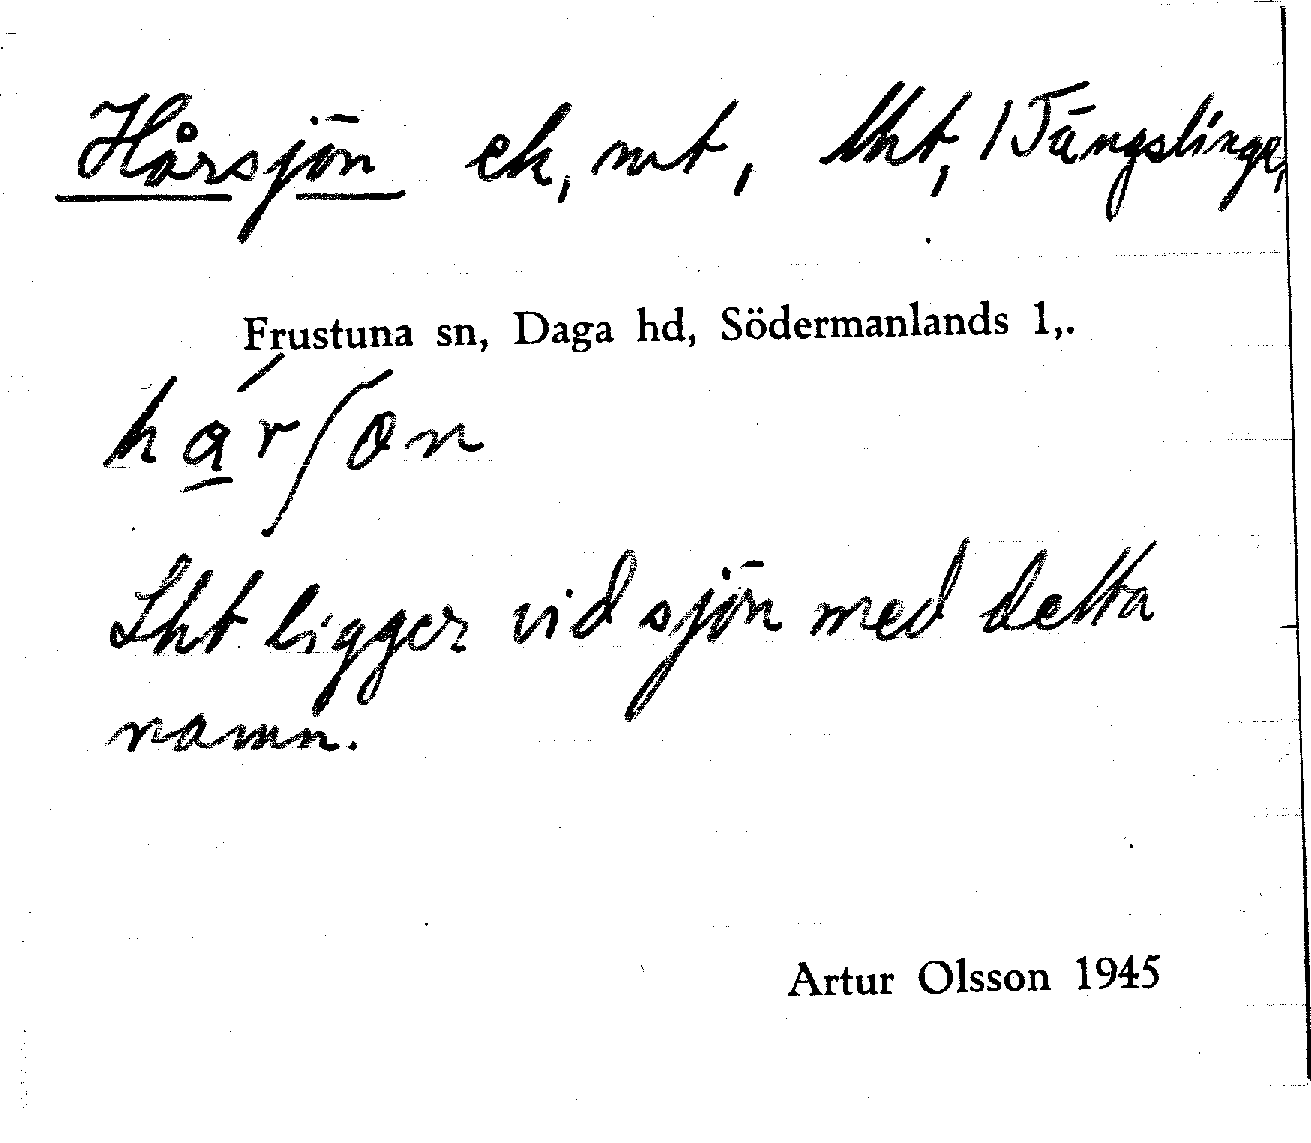 Hårsjön ek, mt, lht, 1 Tängslinge,
Frustuna sn, Daga hd, Södermanlands l,.
ha̲r´ʃon
Lht ligger vid sjön med detta
namn.
Artur Olsson 1945